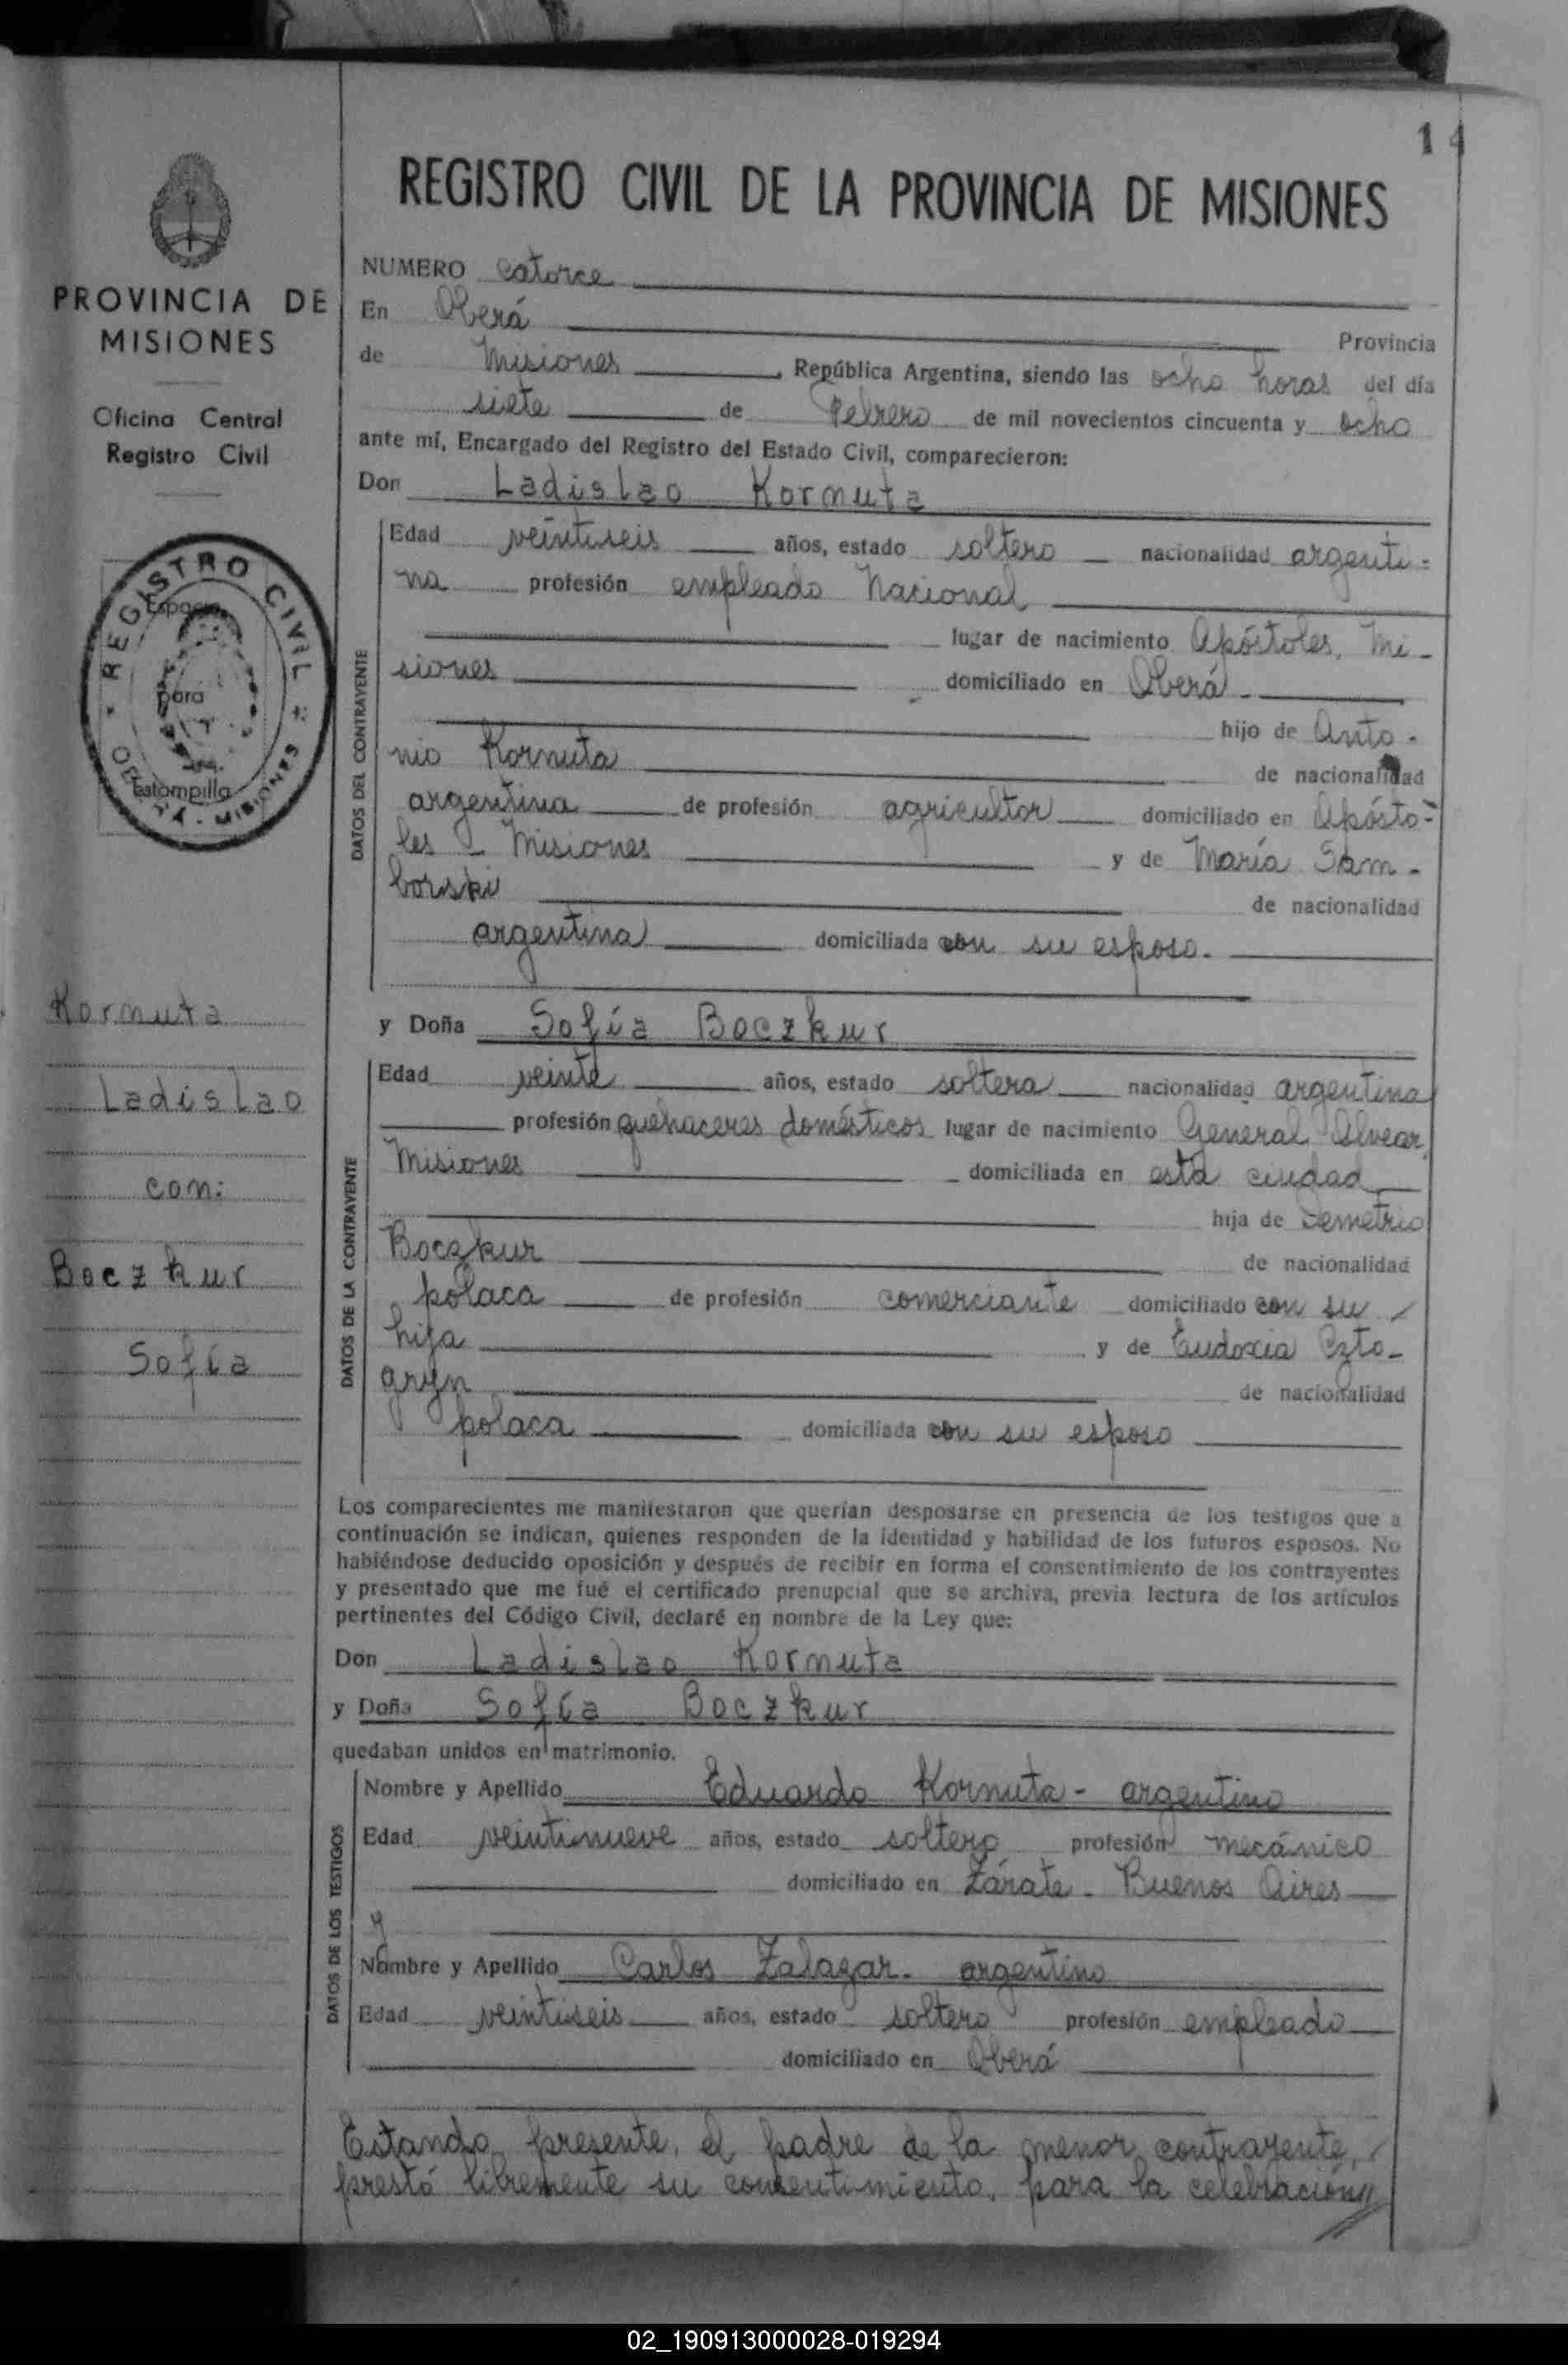 14
REGISTRO CIVIL DE LA PROVINCIA DE MISIONES
PROVINCIA DE
MISIONES
Oficina Central
Registro Civil
REGISTRO CIVIL
Espacio
para
Estampilla
OBERÁ - MISIONES
Kornuta
Ladislao
con:
Boczkur
Sofía
NUMERO catorce
En Oberá Provincia
de Misiones, República Argentina, siendo las ocho horas del día
siete de Febrero de mil novecientos cincuenta y ocho
ante mí, Encargado del Registro del Estado Civil, comparecieron:
Don Ladislao Kornuta
DATOS DEL CONTRAYENTE
Edad veintiseis años, estado soltero nacionalidad argenti-
na profesión empleado Nacional
lugar de nacimiento Apóstoles, Mi-
siones domiciliado en Oberá
hijo de Anto-
nio Kornuta de nacionalidad
argentina de profesión agricultor domiciliado en Apósto-
les - Misiones y de María Sam-
borski de nacionalidad
argentina domiciliada con su esposo.
y Doña Sofía Boczkur
DATOS DE LA CONTRAYENTE
Edad veinte años, estado soltera nacionalidad argentina
profesión quehaceres domésticos lugar de nacimiento General Alvear,
Misiones domiciliada en esta ciudad
hija de Demetrio
Boczkur de nacionalidad
polaca de profesión comerciante domiciliado con su
hija y de Eudoxia Czto-
gryn de nacionalidad
polaca domiciliada con su esposo
Los comparecientes me manifestaron que querían desposarse en presencia de los testigos que a
continuación se indican, quienes responden de la identidad y habilidad de los futuros esposos. No
habiéndose deducido oposición y después de recibir en forma el consentimiento de los contrayentes
y presentado que me fué el certificado prenupcial que se archiva, previa lectura de los artículos
pertinentes del Código Civil, declaré en nombre de la Ley que:
Don Ladislao Kornuta
y Doña Sofía Boczkur
quedaban unidos en matrimonio.
DATOS DE LOS TESTIGOS
Nombre y Apellido Eduardo Kornuta - argentino
Edad veintinueve años, estado soltero profesión mecánico
domiciliado en Zárate - Buenos Aires
y
Nombre y Apellido Carlos Zalazar - argentino
Edad veintiseis años, estado soltero profesión empleado
domiciliado en Oberá
Estando presente, el padre de la menor contrayente,
prestó libremente su consentimiento, para la celebración//
02_190913000028-019294